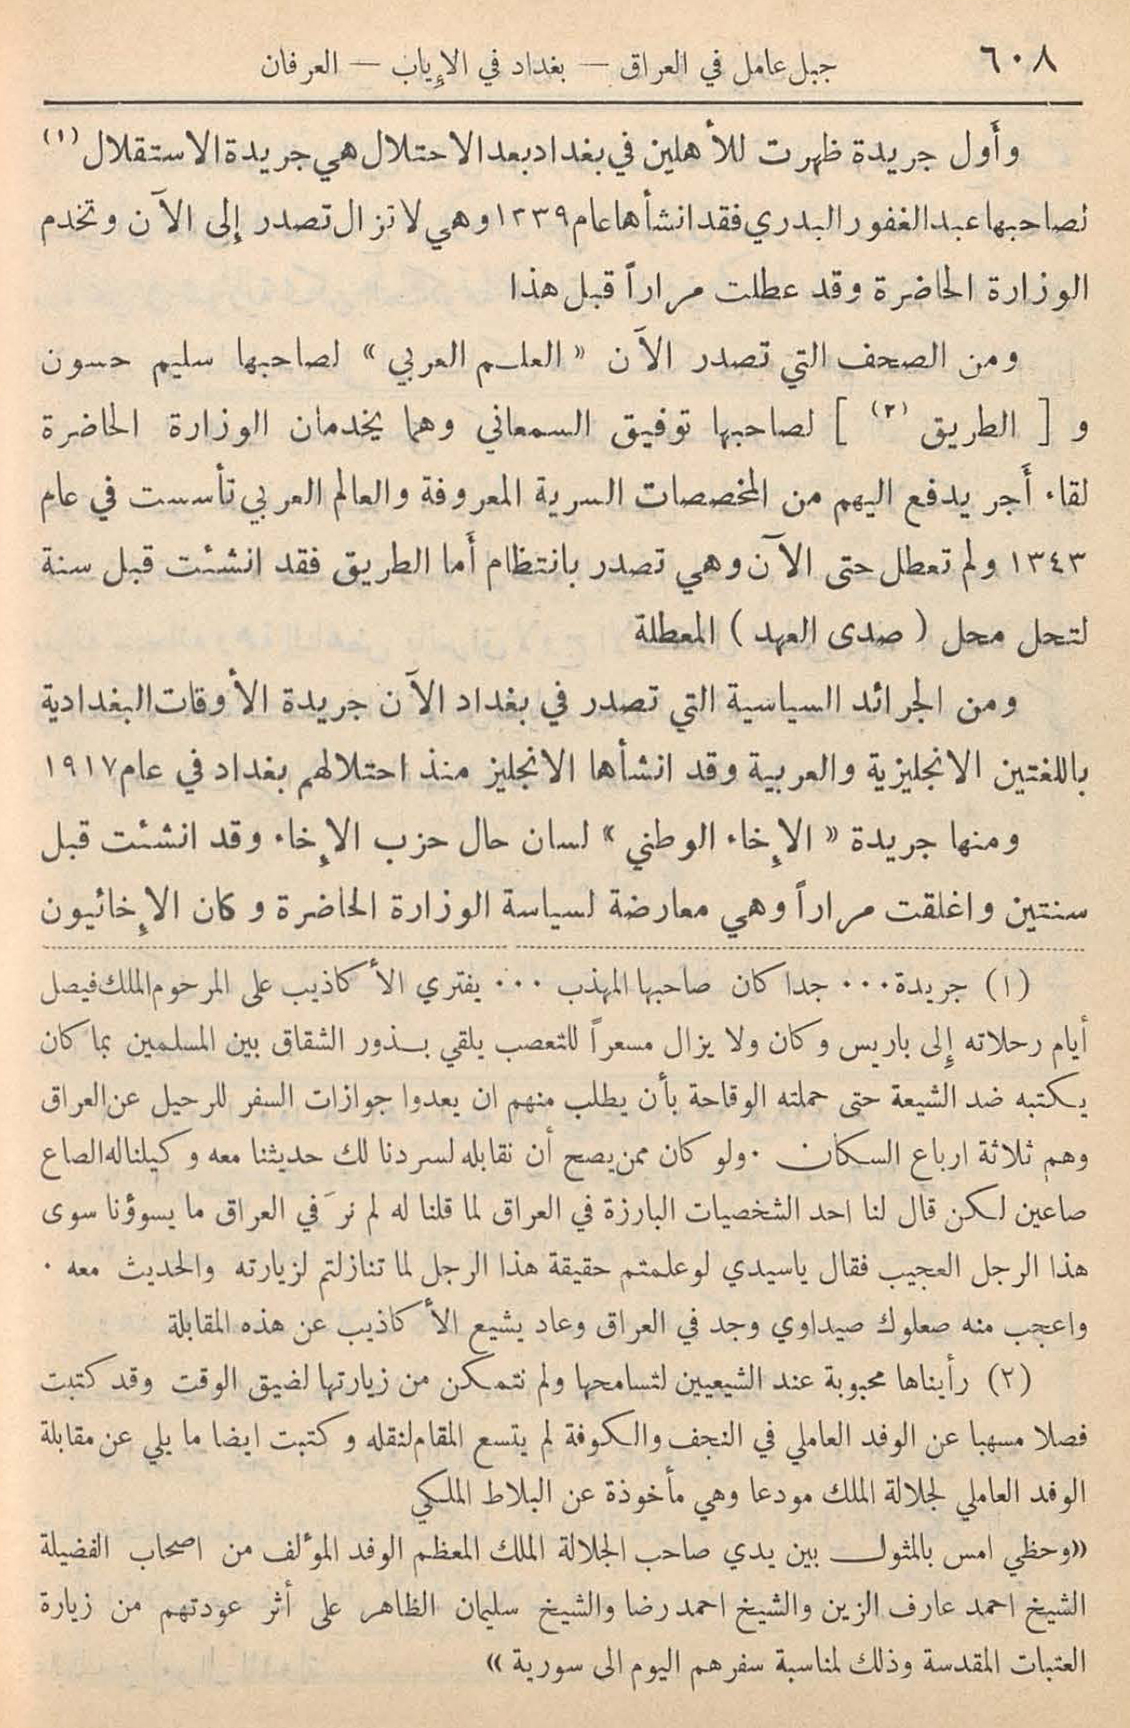 ٦٠٨
جبل عامل في العراق — بغداد في الإياب — العرفان
وأول جريدة ظهرت للأهلين في بغداد بعد الاحتلال هي جريدة الاستقلال (١)
لصاحبها عبد الغفور البدري فقد انشأها عام ١٣٣٩ وهي لا تزال تصدر إلى الآن وتخدم
الوزارة الحاضرة وقد عطلت مراراً قبل هذا
ومن الصحف التي تصدر الآن « العلم العربي » لصاحبها سليم حسون
و [ الطريق (٢) ] لصاحبها توفيق السمعاني وهما يخدمان الوزارة الحاضرة
لقاء أجر يدفع اليهم من المخصصات السرية المعروفة والعالم العربي تأسست في عام
١٣٤٣ ولم تعطل حتى الآن وهي تصدر بانتظام أما الطريق فقد انشئت قبل سنة
لتحل محل ( صدى العهد ) المعطلة
ومن الجرائد السياسية التي تصدر في بغداد الآن جريدة الأوقات البغدادية
باللغتين الانجليزية والعربية وقد انشأها الانجليز منذ احتلالهم بغداد في عام ١٩١٧
ومنها جريدة « الإخاء الوطني » لسان حال حزب الإخاء وقد انشئت قبل
سنتين واغلقت مراراً وهي معارضة لسياسة الوزارة الحاضرة وكان الإخائيون
(١) جريدة ٠٠٠ جدا كان صاحبها المهذب ٠٠٠ يفتري الأكاذيب على المرحوم الملك فيصل
أيام رحلاته إلى باريس وكان ولا يزال مسعراً للتعصب يلقي بذور الشقاق بين المسلمين بما كان
يكتبه ضد الشيعة حتى حملته الوقاحة بأن يطلب منهم ان يعدوا جوازات السفر للرحيل عن العراق
وهم ثلاثة ارباع السكان ٠ ولو كان ممن يصح أن نقابله لسردنا لك حديثنا معه وكيلنا له الصاع
صاعين لكن قال لنا احد الشخصيات البارزة في العراق لما قلنا له لم نرَ في العراق ما يسوؤنا سوى
هذا الرجل العجيب فقال ياسيدي لو علمتم حقيقة هذا الرجل لما تنازلتم لزيارته والحديث معه ٠
واعجب منه صعلوك صيداوي وجد في العراق وعاد يشيع الأكاذيب عن هذه المقابلة
(٢) رأيناها محبوبة عند الشيعيين لتسامحها ولم نتمكن من زيارتها لضيق الوقت وقد كتبت
فصلا مسهبا عن الوفد العاملي في النجف والكوفة لم يتسع المقام لنقله وكتبت ايضا ما يلي عن مقابلة
الوفد العاملي لجلالة الملك مودعا وهي مأخوذة عن البلاط الملكي
«وحظي امس بالمثول بين يدي صاحب الجلالة الملك المعظم الوفد المؤلف من اصحاب الفضيلة
الشيخ احمد عارف الزين والشيخ احمد رضا والشيخ سليمان الظاهر على أثر عودتهم من زيارة
العتبات المقدسة وذلك لمناسبة سفرهم اليوم الى سورية »